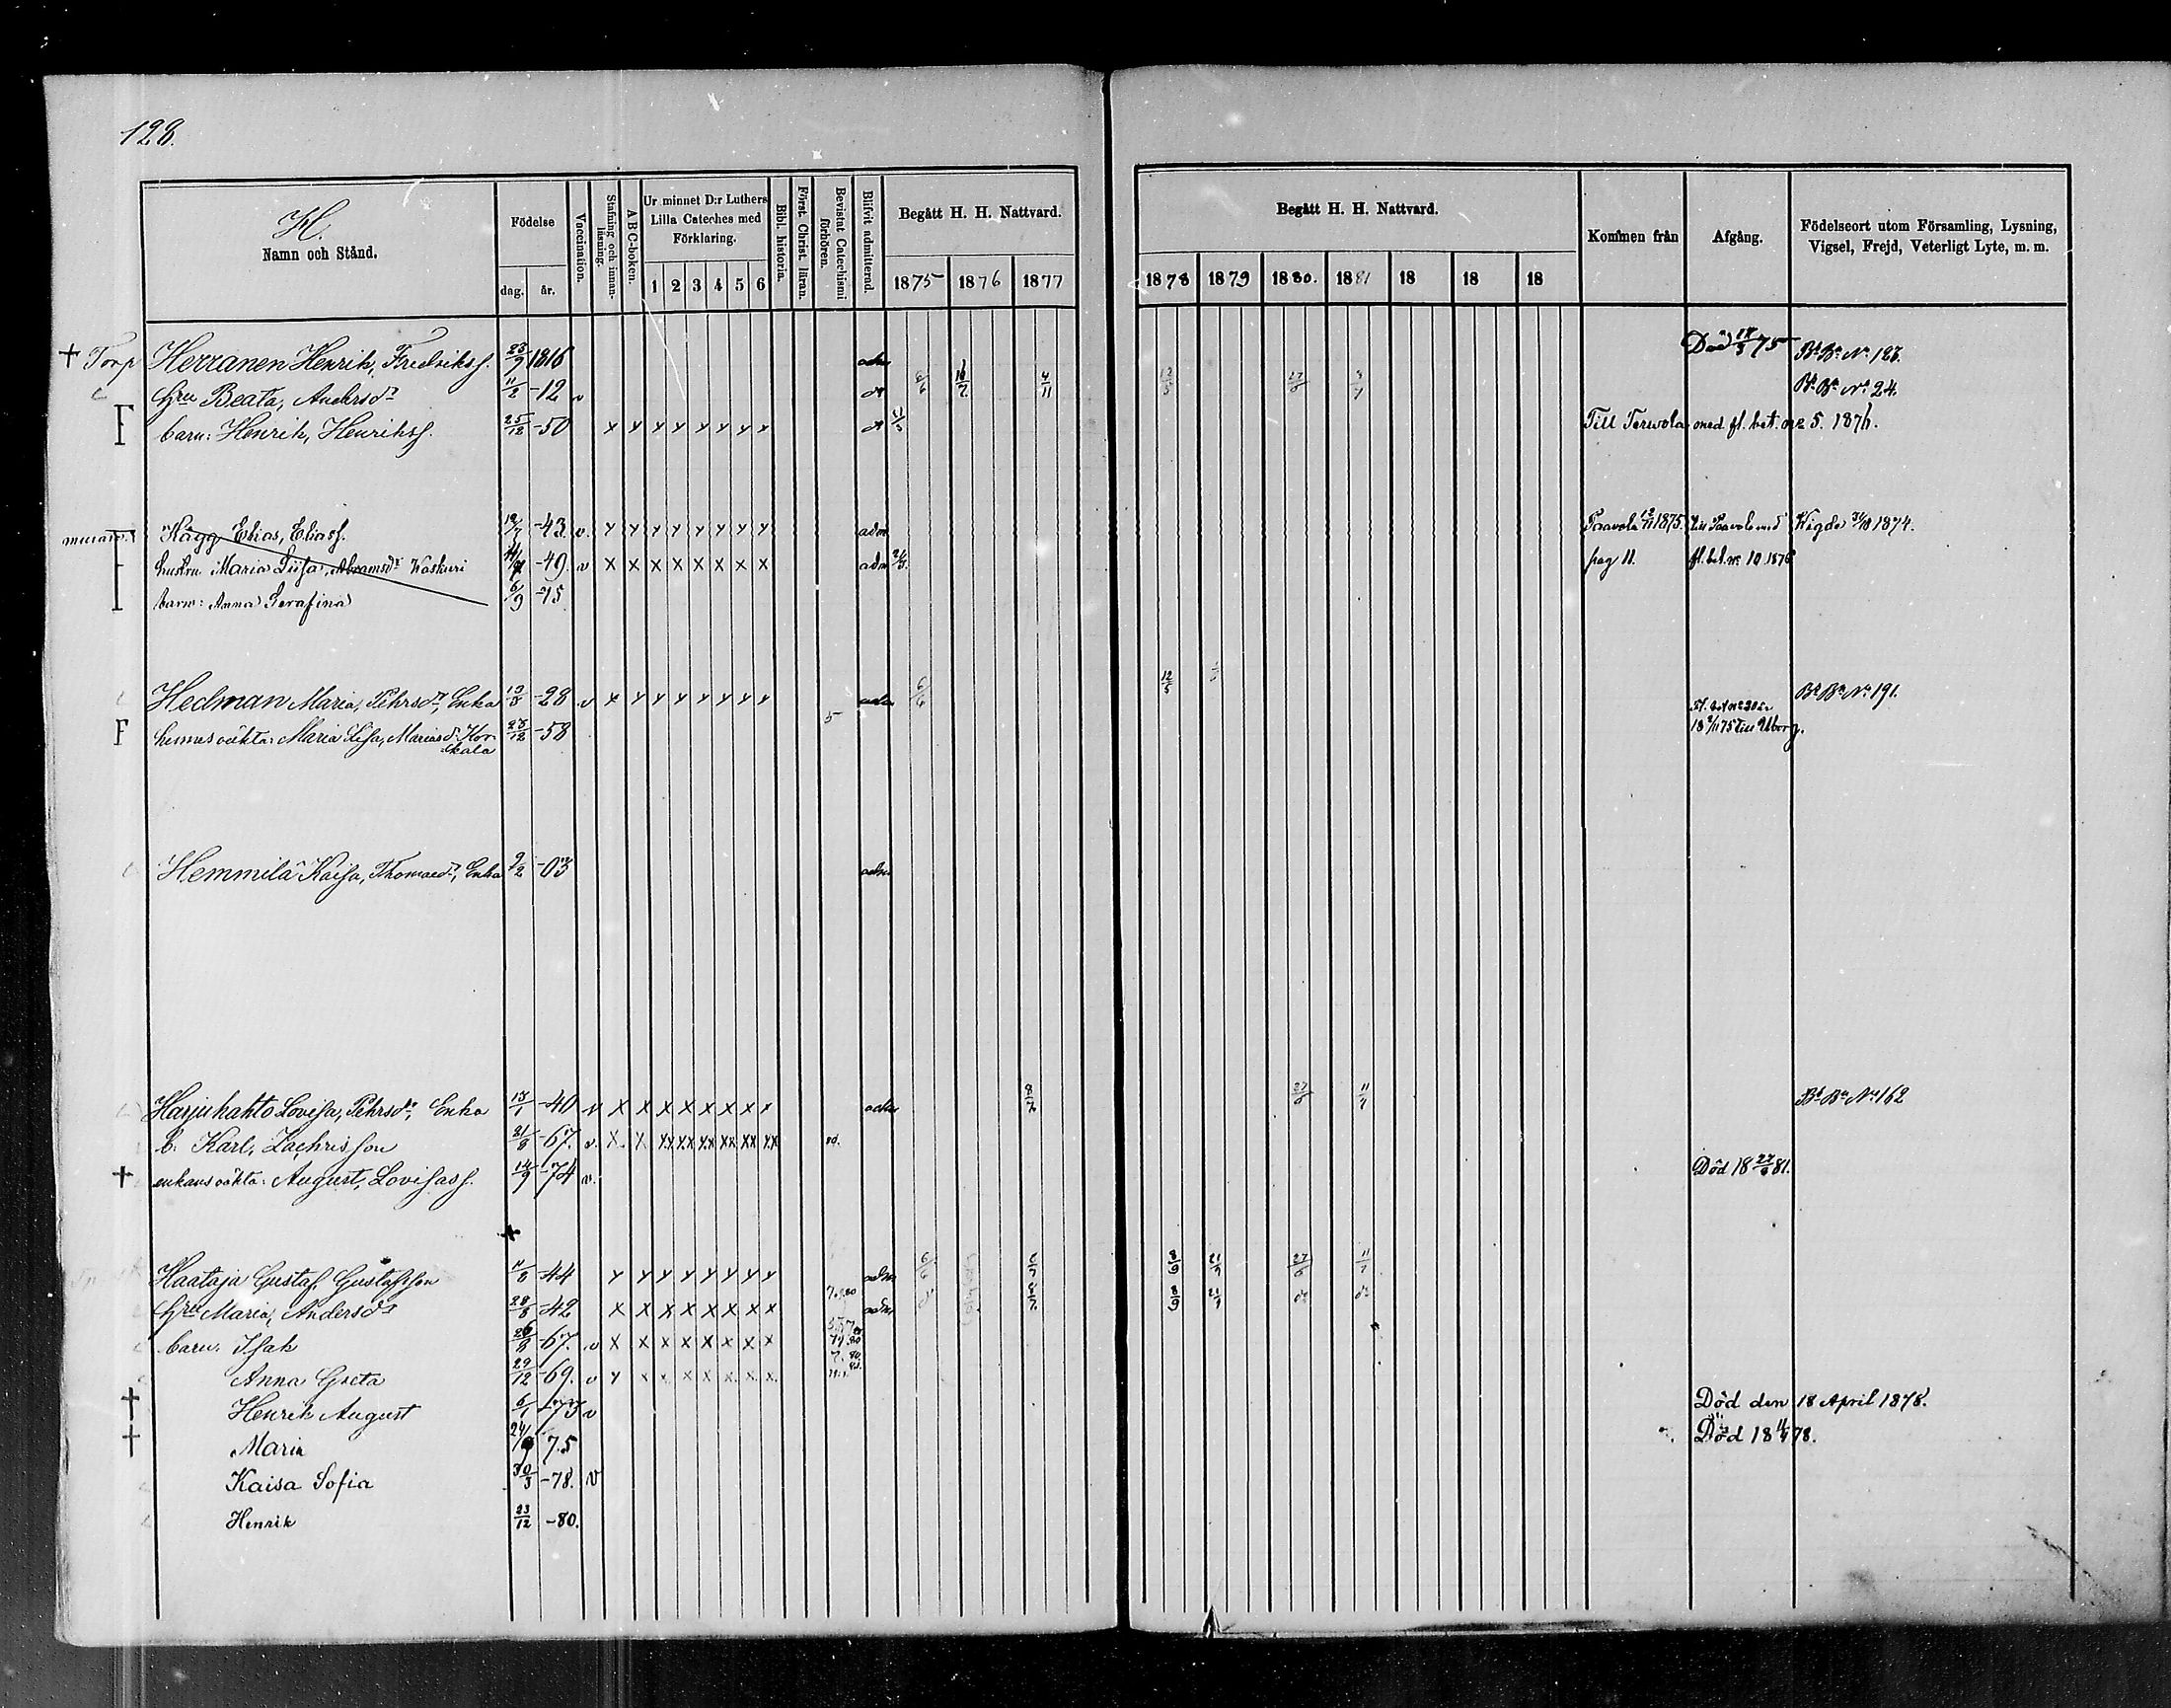 128.
H.
Namn och Stånd.
Födelse
dag. år.
Vaccination.
Stafning och innanläsning.
ABC-boken.
Ur minnet D:r Luthers Lilla Cateches med Förklaring.
1 2 3 4 5 6
Bibl. historia.
Först. Christ. läran.
Bevistat Catechismi förhören.
Blifvit admitterad.
Begått H. H. Nattvard.
1875 1876 1877
Begått H. H. Nattvard.
1878 1879 1880. 1881 18 18 18
Kommen från
Afgång.
Födelseort utom Församling, Lysning, Vigsel, Frejd, Veterligt Lyte, m. m.
† Torp Herranen Henrik, Fredriksf. 23/9 1816 adm Död 18/3 75 Bt. Bn. No. 123.
hru Beata, Andersdr 11/2 -12 v dt 6/6 16/7 4/11 12/5 27/6 3/7 Bt. Bn. No. 24.
F barn: Henrik, Henriksf. 25/12 -50 x x x x x x x x dt Till Terwola med fl. bet. no 5. 1876.
Hägg Elias, Eliasf. 19/7 -43. v. x x x x x x x x adm Paavola 12/11 1875. till Paavola med Wigde 31/10 1874.
hustru Maria Liisa, Abramsdr Waskuri -49. v x x x x x x x x adm pag 11. fl. bet. no 10 1876
barn: Anna Serafina 6/9 -75
Hedman Maria, Pehrsdr, Enka 19/8 -28 v x x x x x x x x adm 6/6 12/5 Bt. Bn. No. 191.
F hennes oäkta: Maria Lisa, Mariasdr Kor- 28/12 -58 5
skala 18 2/11 75 till Uborg.
Hemmilä Kaisa, Thomasdr, Enka 9/2 -03 adm
Harjukahto Lovisa, Pehrsdr, Enka 13/1 -40 v x x x x x x x x adm 8/7 27/6 11/7 Bt. Bn. No. 162
b. Karl, Zachrisson 21/8 -67. v. x x xx xx xx xx xx xx
† enkans oäkta: August, Lovisasf. 14/9 -74 v. Död 18 27/6 81.
Haataja Gustaf, Gustafsson 11/8 -44 x x x x x x x x adm 6/6 8/9 21/9 27/6 11/7
hru Maria, Andersdr 28/8 -42 x x x x x x x x adm 8/9 21/9 dt dt
barn. Isak 26/8 -67. v x x x x x x x x
Anna Greta 29/12 -69. v x x x x x x x x
† Henrik August 6/1 -73 v Död den 18 April 1878.
† Maria 24/9 75 Död 18 11/4 78.
Kaisa Sofia 30/3 -78. v
Henrik 23/12 -80.